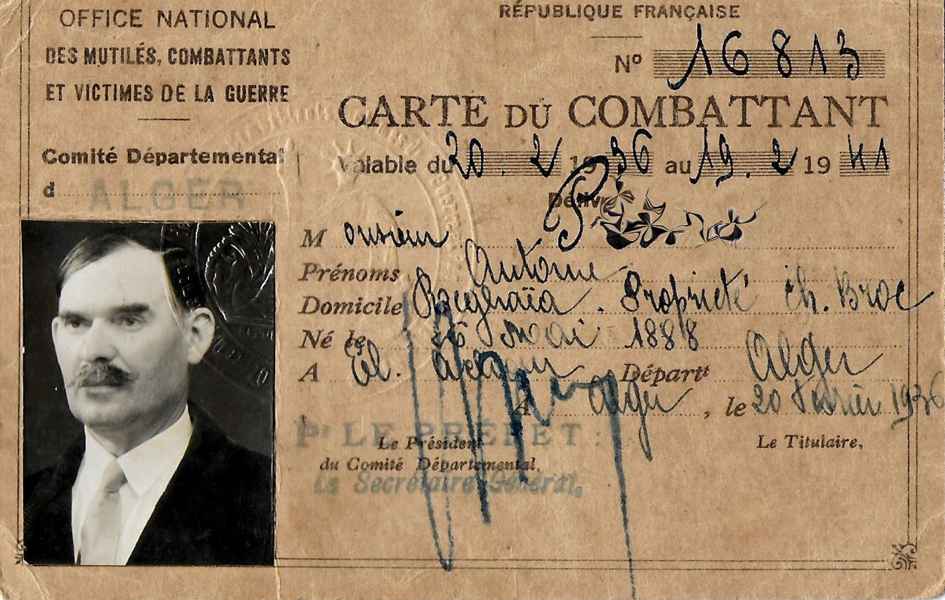 OFFICE NATIONAL
DES MUTILÉS, COMBATTANTS
ET VICTIMES DE LA GUERRE
Comité Départemental
d ALGER
RÉPUBLIQUE FRANÇAISE
Nº 16813
CARTE DU COMBATTANT
Valable du 20. 2 1936 au 19. 2 1941
Délivré
Monsieur
Prénoms Antoine
Domicile Propriété Ch. Broc
Né le 26 Mai 1888
A El. Départᵗ Alger
A Alger, le 20 Février 1936
Pʳ LE PRÉFET :
Le Président
du Comité Départemental,
Le Secrétaire Général,
Le Titulaire,